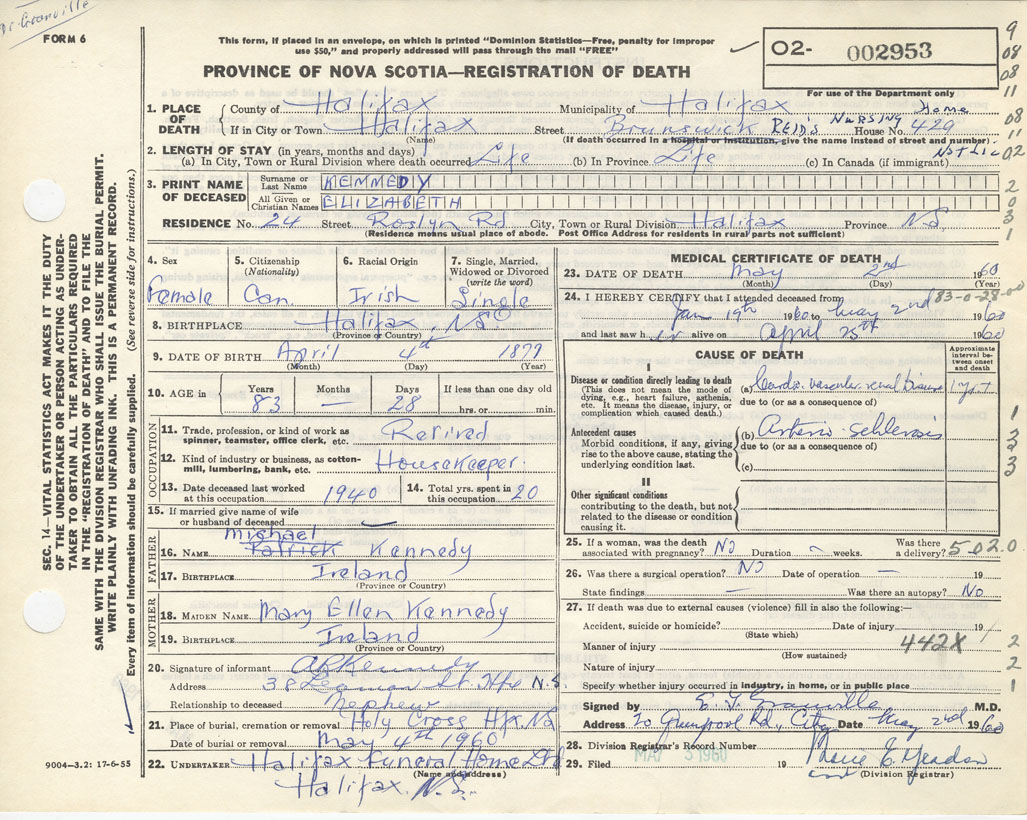 Dr. Granville
FORM 6
This form, if placed in an envelope, on which is printed "Dominion Statistics—Free, penalty for improper
use $50," and properly addressed will pass through the mail "FREE"
PROVINCE OF NOVA SCOTIA—REGISTRATION OF DEATH
02- 002953
For use of the Department only
9
08
08
11
08
11
02
2
0
3
1
1. PLACE OF DEATH
County of Halifax Municipality of Halifax Home
If in City or Town Halifax Street Brunswick REID'S NURSING House No. 429
(Name) (If death occurred in a hospital or institution, give the name instead of street and number)
Not Lic
2. LENGTH OF STAY (in years, months and days)
(a) In City, Town or Rural Division where death occurred Life (b) In Province Life (c) In Canada (if immigrant)
3. PRINT NAME OF DECEASED
Surname or Last Name KEMMEDY
All Given or Christian Names ELIZABETH
RESIDENCE No. 24 Street Roslyn Rd City, Town or Rural Division Halifax Province N S
(Residence means usual place of abode. Post Office Address for residents in rural parts not sufficient)
4. Sex Female
5. Citizenship (Nationality) Can.
6. Racial Origin Irish
7. Single, Married, Widowed or Divorced (write the word) Single
8. BIRTHPLACE Halifax, N.S.
(Province or Country)
9. DATE OF BIRTH April 4th 1877
(Month) (Day) (Year)
10. AGE in Years 83 Months — Days 28 If less than one day old
hrs. or min.
OCCUPATION
11. Trade, profession, or kind of work as spinner, teamster, office clerk, etc. Retired
12. Kind of industry or business, as cotton-mill, lumbering, bank, etc. Housekeeper.
13. Date deceased last worked at this occupation 1940
14. Total yrs. spent in this occupation 20
15. If married give name of wife or husband of deceased —
FATHER
michael
16. NAME Patrick Kennedy
17. BIRTHPLACE Ireland
(Province or Country)
MOTHER
18. MAIDEN NAME Mary Ellen Kennedy
19. BIRTHPLACE Ireland
(Province or Country)
20. Signature of informant A P Kennedy
Address 38 Leaman St. Hfx N.S
Relationship to deceased Nephew
21. Place of burial, cremation or removal Holy Cross Hfx. NS
Date of burial or removal May 4th 1960
22. UNDERTAKER Halifax Funeral Home Ltd
(Name and address)
Halifax N.S.
MEDICAL CERTIFICATE OF DEATH
23. DATE OF DEATH May 2nd 1960
(Month) (Day) (Year)
83-0-28-00
24. I HEREBY CERTIFY that I attended deceased from
Jan 19th 1960 to May 2nd 1960
and last saw her alive on April 25th 1960
CAUSE OF DEATH
Approximate interval between onset and death
I
Disease or condition directly leading to death
(This does not mean the mode of dying, e.g., heart failure, asthenia, etc. It means the disease, injury, or complication which caused death.)
(a) Cardio vascular renal Disease 1 yr +
due to (or as a consequence of)
Antecedent causes
Morbid conditions, if any, giving rise to the above cause, stating the underlying condition last.
(b) Arterio sclerosis
due to (or as a consequence of)
(c)
II
Other significant conditions contributing to the death, but not related to the disease or condition causing it.
1
2
2
3
25. If a woman, was the death associated with pregnancy? NO Duration ~ weeks. Was there a delivery?
5-02.0
26. Was there a surgical operation? NO Date of operation — 19
State findings — Was there an autopsy? No
27. If death was due to external causes (violence) fill in also the following:—
Accident, suicide or homicide? Date of injury 19
(State which)
Manner of injury 442X
(How sustained)
Nature of injury
Specify whether injury occurred in industry, in home, or in public place
2
2
1
Signed by E. F. Granville M.D.
Address Rd, City Date May 2nd 1960
28. Division Registrar's Record Number
29. Filed MAY 3 1960 19
(Division Registrar)
SEC. 14—VITAL STATISTICS ACT MAKES IT THE DUTY
OF THE UNDERTAKER OR PERSON ACTING AS UNDER-
TAKER TO OBTAIN ALL THE PARTICULARS REQUIRED
IN THE "REGISTRATION OF DEATH" AND TO FILE THE
SAME WITH THE DIVISION REGISTRAR WHO SHALL ISSUE THE BURIAL PERMIT.
WRITE PLAINLY WITH UNFADING INK. THIS IS A PERMANENT RECORD.
Every item of Information should be carefully supplied. (See reverse side for instructions.)
9004—3.2: 17-6-55